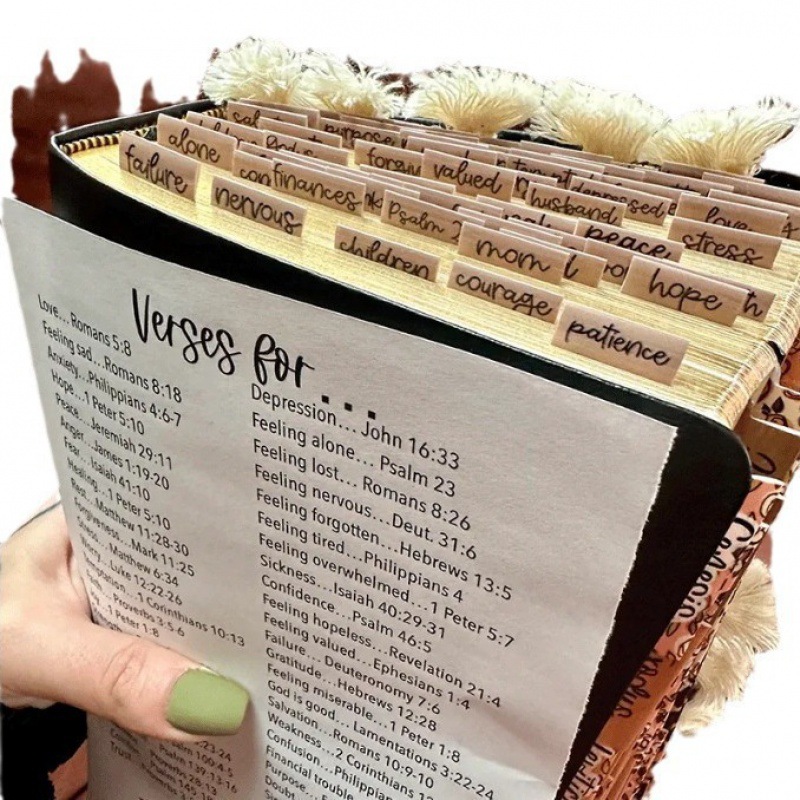 alone
failure
nervous
finances
children
purpose
valued
Psalm
husband
depressed
peace
stress
mom
courage
hope
patience
Verses for...
Love... Romans 5:8
Feeling sad...Romans 8:18
Anxiety...Philippians 4:6-7
Hope...1 Peter 5:10
Peace...Jeremiah 29:11
Anger...James 1:19-20
Fear...Isaiah 41:10
Healing...1 Peter 5:10
Rest...Matthew 11:28-30
Forgiveness...Mark 11:25
Stress...Matthew 6:34
Worry...Luke 12:22-26
Temptation...1 Corinthians 10:13
Proverbs 3:5-6
1 Peter 1:8
23-24
Psalm 100:4-5
Psalm 139:13-16
Proverbs 28:13
Trust...
Depression... John 16:33
Feeling alone... Psalm 23
Feeling lost... Romans 8:26
Feeling nervous...Deut. 31:6
Feeling forgotten...Hebrews 13:5
Feeling tired...Philippians 4
Feeling overwhelmed...1 Peter 5:7
Sickness...Isaiah 40:29-31
Confidence...Psalm 46:5
Feeling hopeless...Revelation 21:4
Feeling valued...Ephesians 1:4
Failure... Deuteronomy 7:6
Gratitude...Hebrews 12:28
Feeling miserable...1 Peter 1:8
God is good... Lamentations 3:22-24
Salvation...Romans 10:9-10
Weakness...2 Corinthians 12
Confusion...Philippian
Financial trouble
Purpose...
Doubt